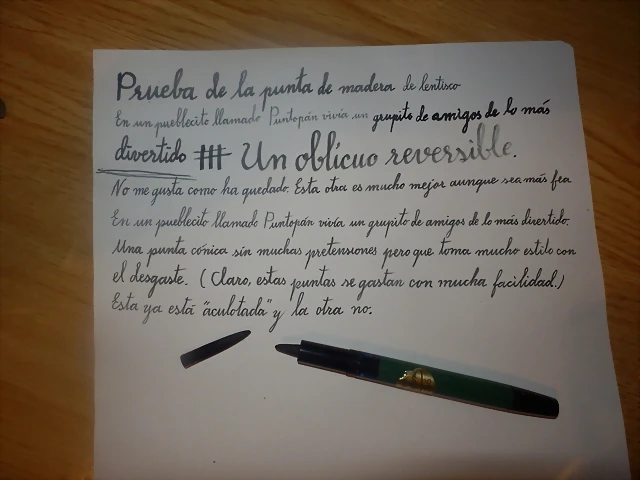 Prueba de la punta de madera de lentisco
En un pueblecito llamado Puntopán vivía un grupito de amigos de lo más
divertido ## Un oblicuo reversible.
No me gusta como ha quedado. Esta otra es mucho mejor aunque sea más fea
En un pueblecito llamado Puntopán vivía un grupito de amigos de lo más divertido.
Una punta cónica sin muchas pretensiones pero que toma mucho estilo con
el desgaste. (Claro, estas puntas se gastan con mucha facilidad.)
Esta ya está "aculotada" y la otra no.